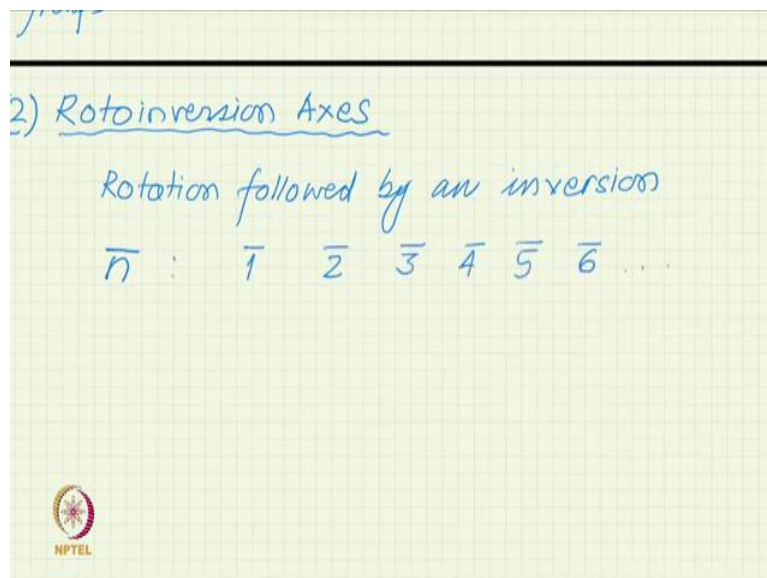 2) Rotoinversion Axes
Rotation followed by an inversion
n̅ : 1̅ 2̅ 3̅ 4̅ 5̅ 6̅ ...
NPTEL